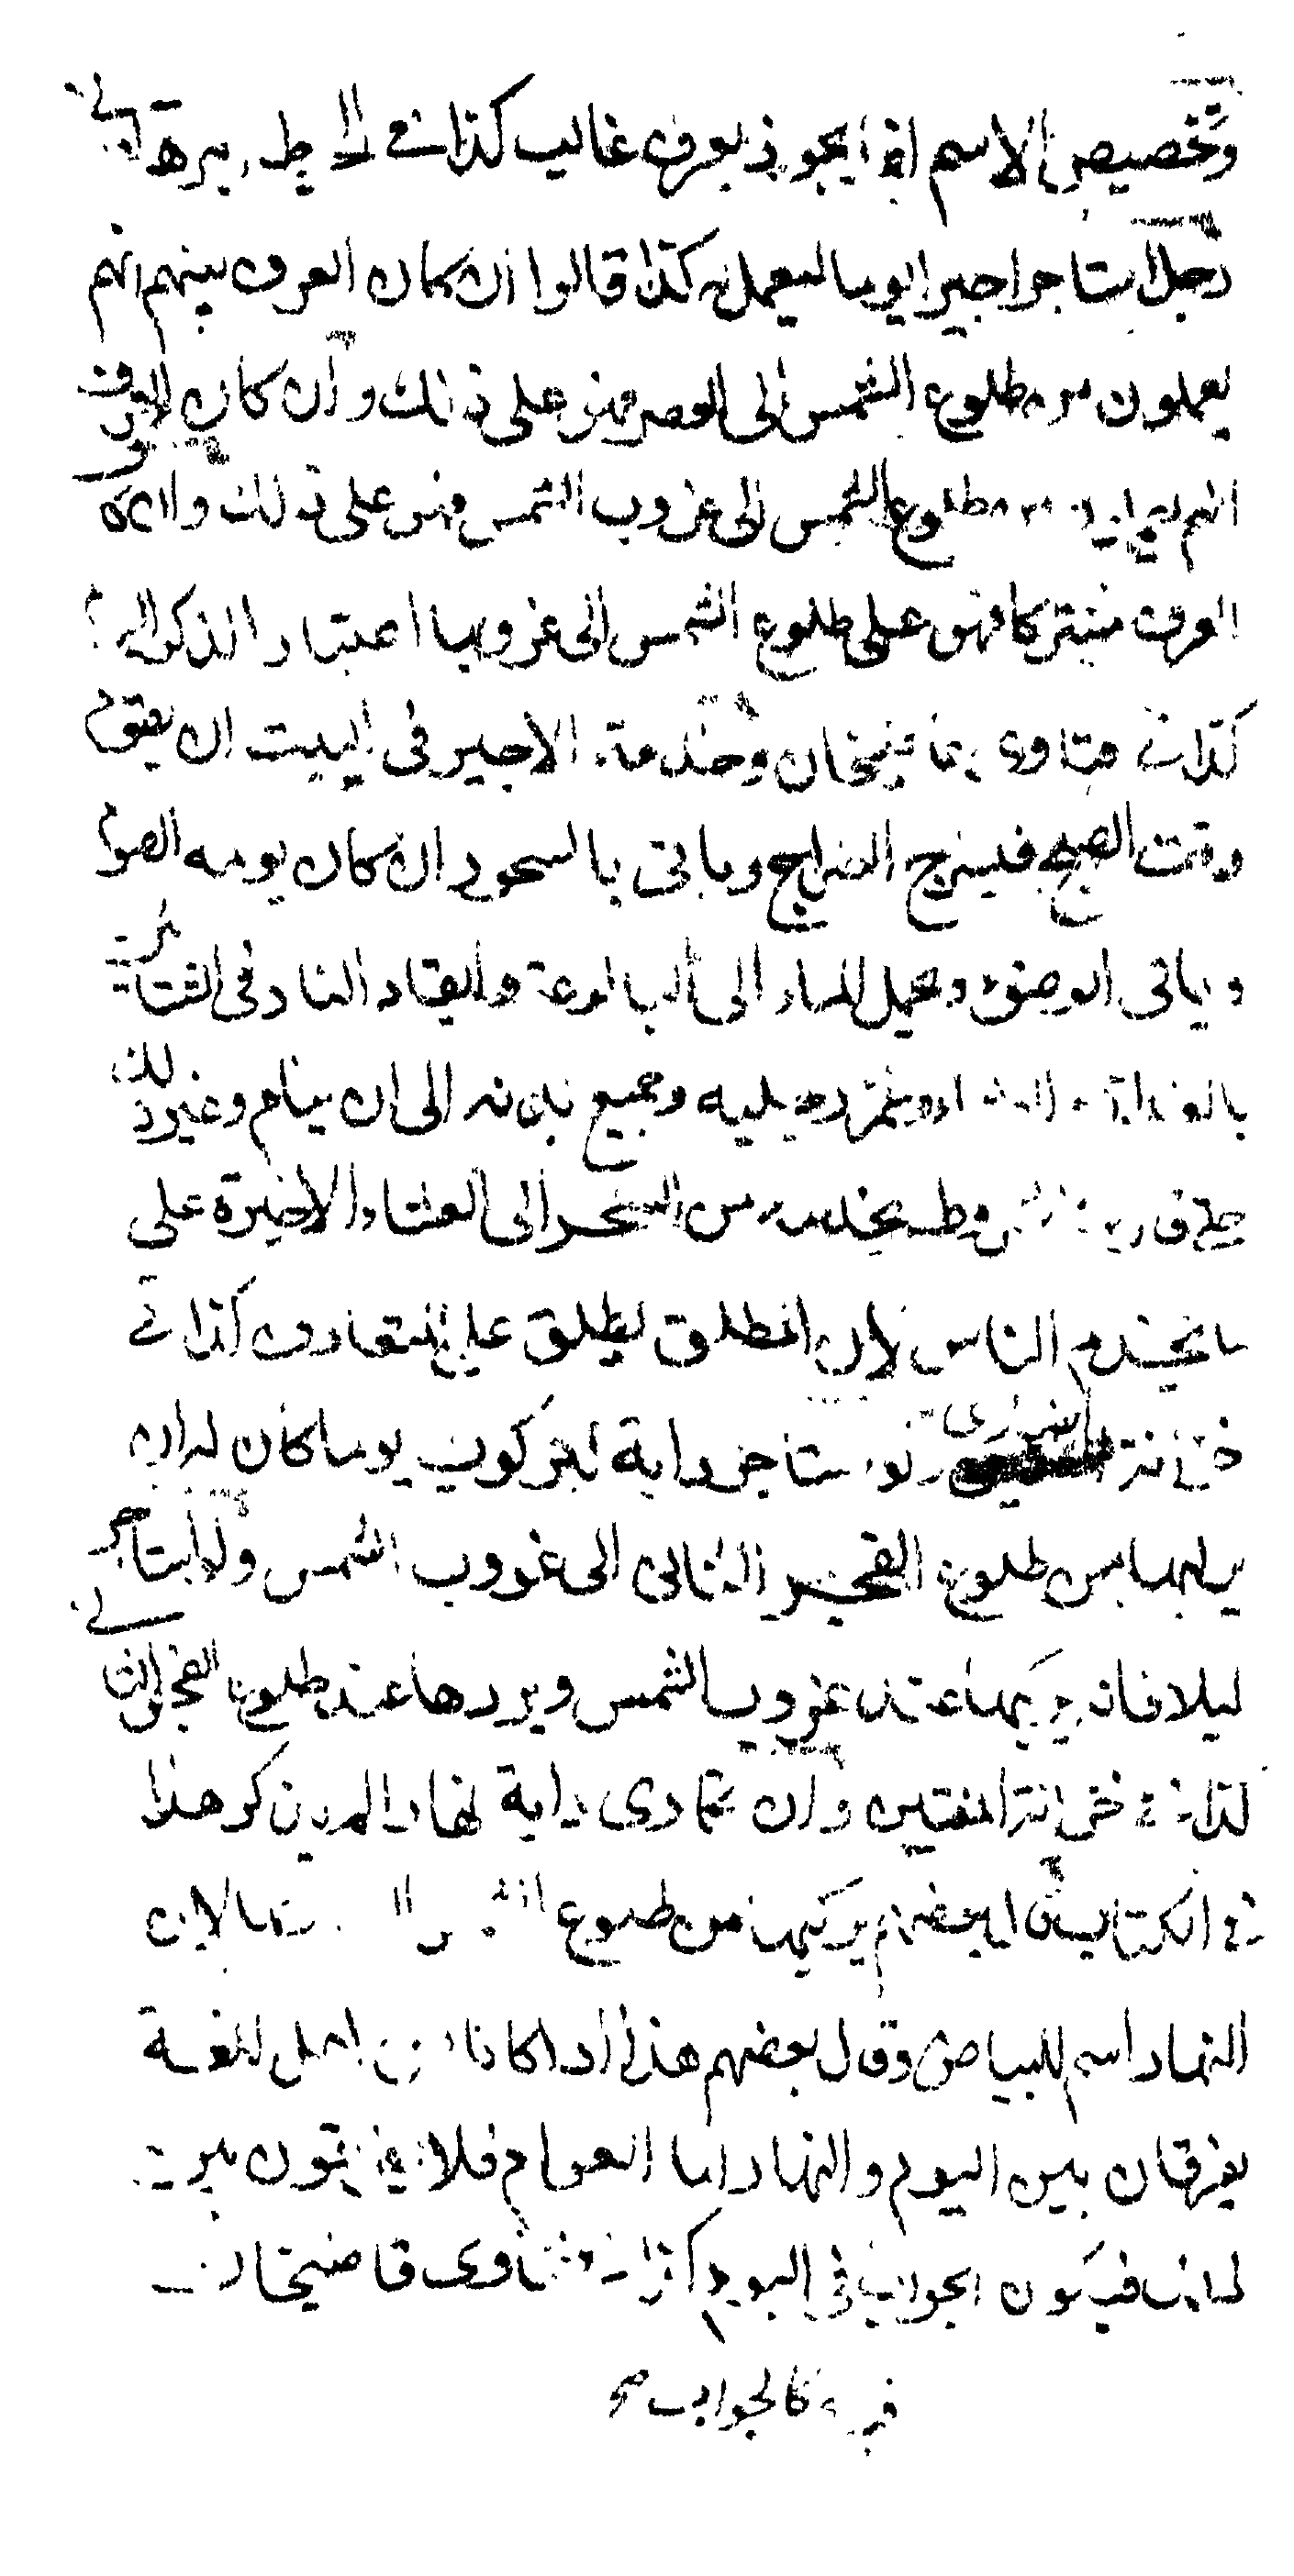 وتخصيص الاسم انما يجوز بعرف غالب كذا في المحيط
رجل استاجر اجيرا يوما ليعمل له كذا قالوا ان كان العرف بينهم انهم
يعملون من طلوع الشمس الى العصر فهو على ذلك وان كان العرف
انهم يعملون من طلوع الشمس الى غروب الشمس فهو على ذلك وان كان
العرف مشتركا فهو على طلوع الشمس الى غروبها اعتبارا لذكر اليوم
كذا في فتاوى قاضيخان وخدمة الاجير في البيت ان يقوم
وقت الصبح فيسرج السراج وياتي بالسحور ان كان يومه الصوم
وياتي الوضوء وحمل الماء الى البالوعة وايقاد النار في الشتاء
بالغداة وغمز رجليه وجميع بدنه الى ان ينام وغير ذلك
من السحر الى العشاء الاخيرة على
ما يخدم الناس لان المطلق يطلق على المتعارف كذا في
خزانة ولو استاجر دابة للركوب يوما كان له ان
يركبها من طلوع الفجر الثاني الى غروب الشمس ولو استاجر
ليلا فانه يركبها عند غروب الشمس ويردها عند طلوع الفجر الثاني
كذا في خزانة المفتين وان تكارى دابة نهارا لم يذكر هذا
في الكتاب قال بعضهم يركبها من طلوع الشمس لان
النهار اسم للبياض وقال بعضهم هذا اذا كانا من اهل اللغة
يفرقان بين اليوم والنهار اما العوام فلا يفرقون بين
ذلك فيكون الجواب في اليوم كذا في فتاوى قاضيخان
فيه كالجواب صح